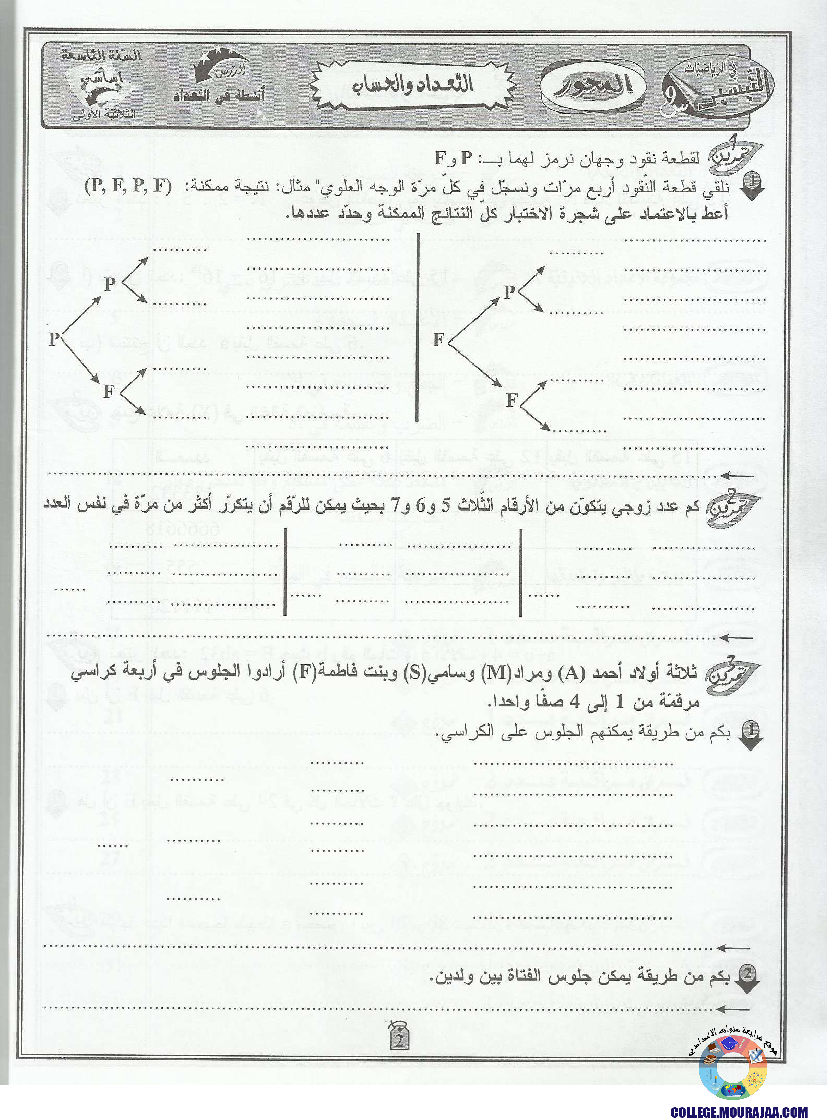 السنة التاسعة
أساسي
الثلاثية الأولى
الدرس
أنشطة في التعداد
التعداد والحساب
المحور
في الرياضيات
9
تمرين 1 لقطعة نقود وجهان نرمز لهما بــ: P و F
1 نلقي قطعة النّقود أربع مرّات ونسجّل في كلّ مرّة الوجه العلوي" مثال: نتيجة ممكنة: (P, F, P, F)
أعط بالاعتماد على شجرة الاختبار كلّ النتائج الممكنة وحدّد عددها.
P
P
F
F
P
F
تمرين 2 كم عدد زوجي يتكوّن من الأرقام الثّلاث 5 و6 و7 بحيث يمكن للرّقم أن يتكرّر أكثر من مرّة في نفس العدد
تمرين 3 ثلاثة أولاد أحمد (A) ومراد(M) وسامي(S) وبنت فاطمة(F) أرادوا الجلوس في أربعة كراسي
مرقمّة من 1 إلى 4 صفّا واحدا.
1 بكم من طريقة يمكنهم الجلوس على الكراسي.
2 بكم من طريقة يمكن جلوس الفتاة بين ولدين.
2
موقع مراجعة
COLLEGE.MOURAJAA.COM